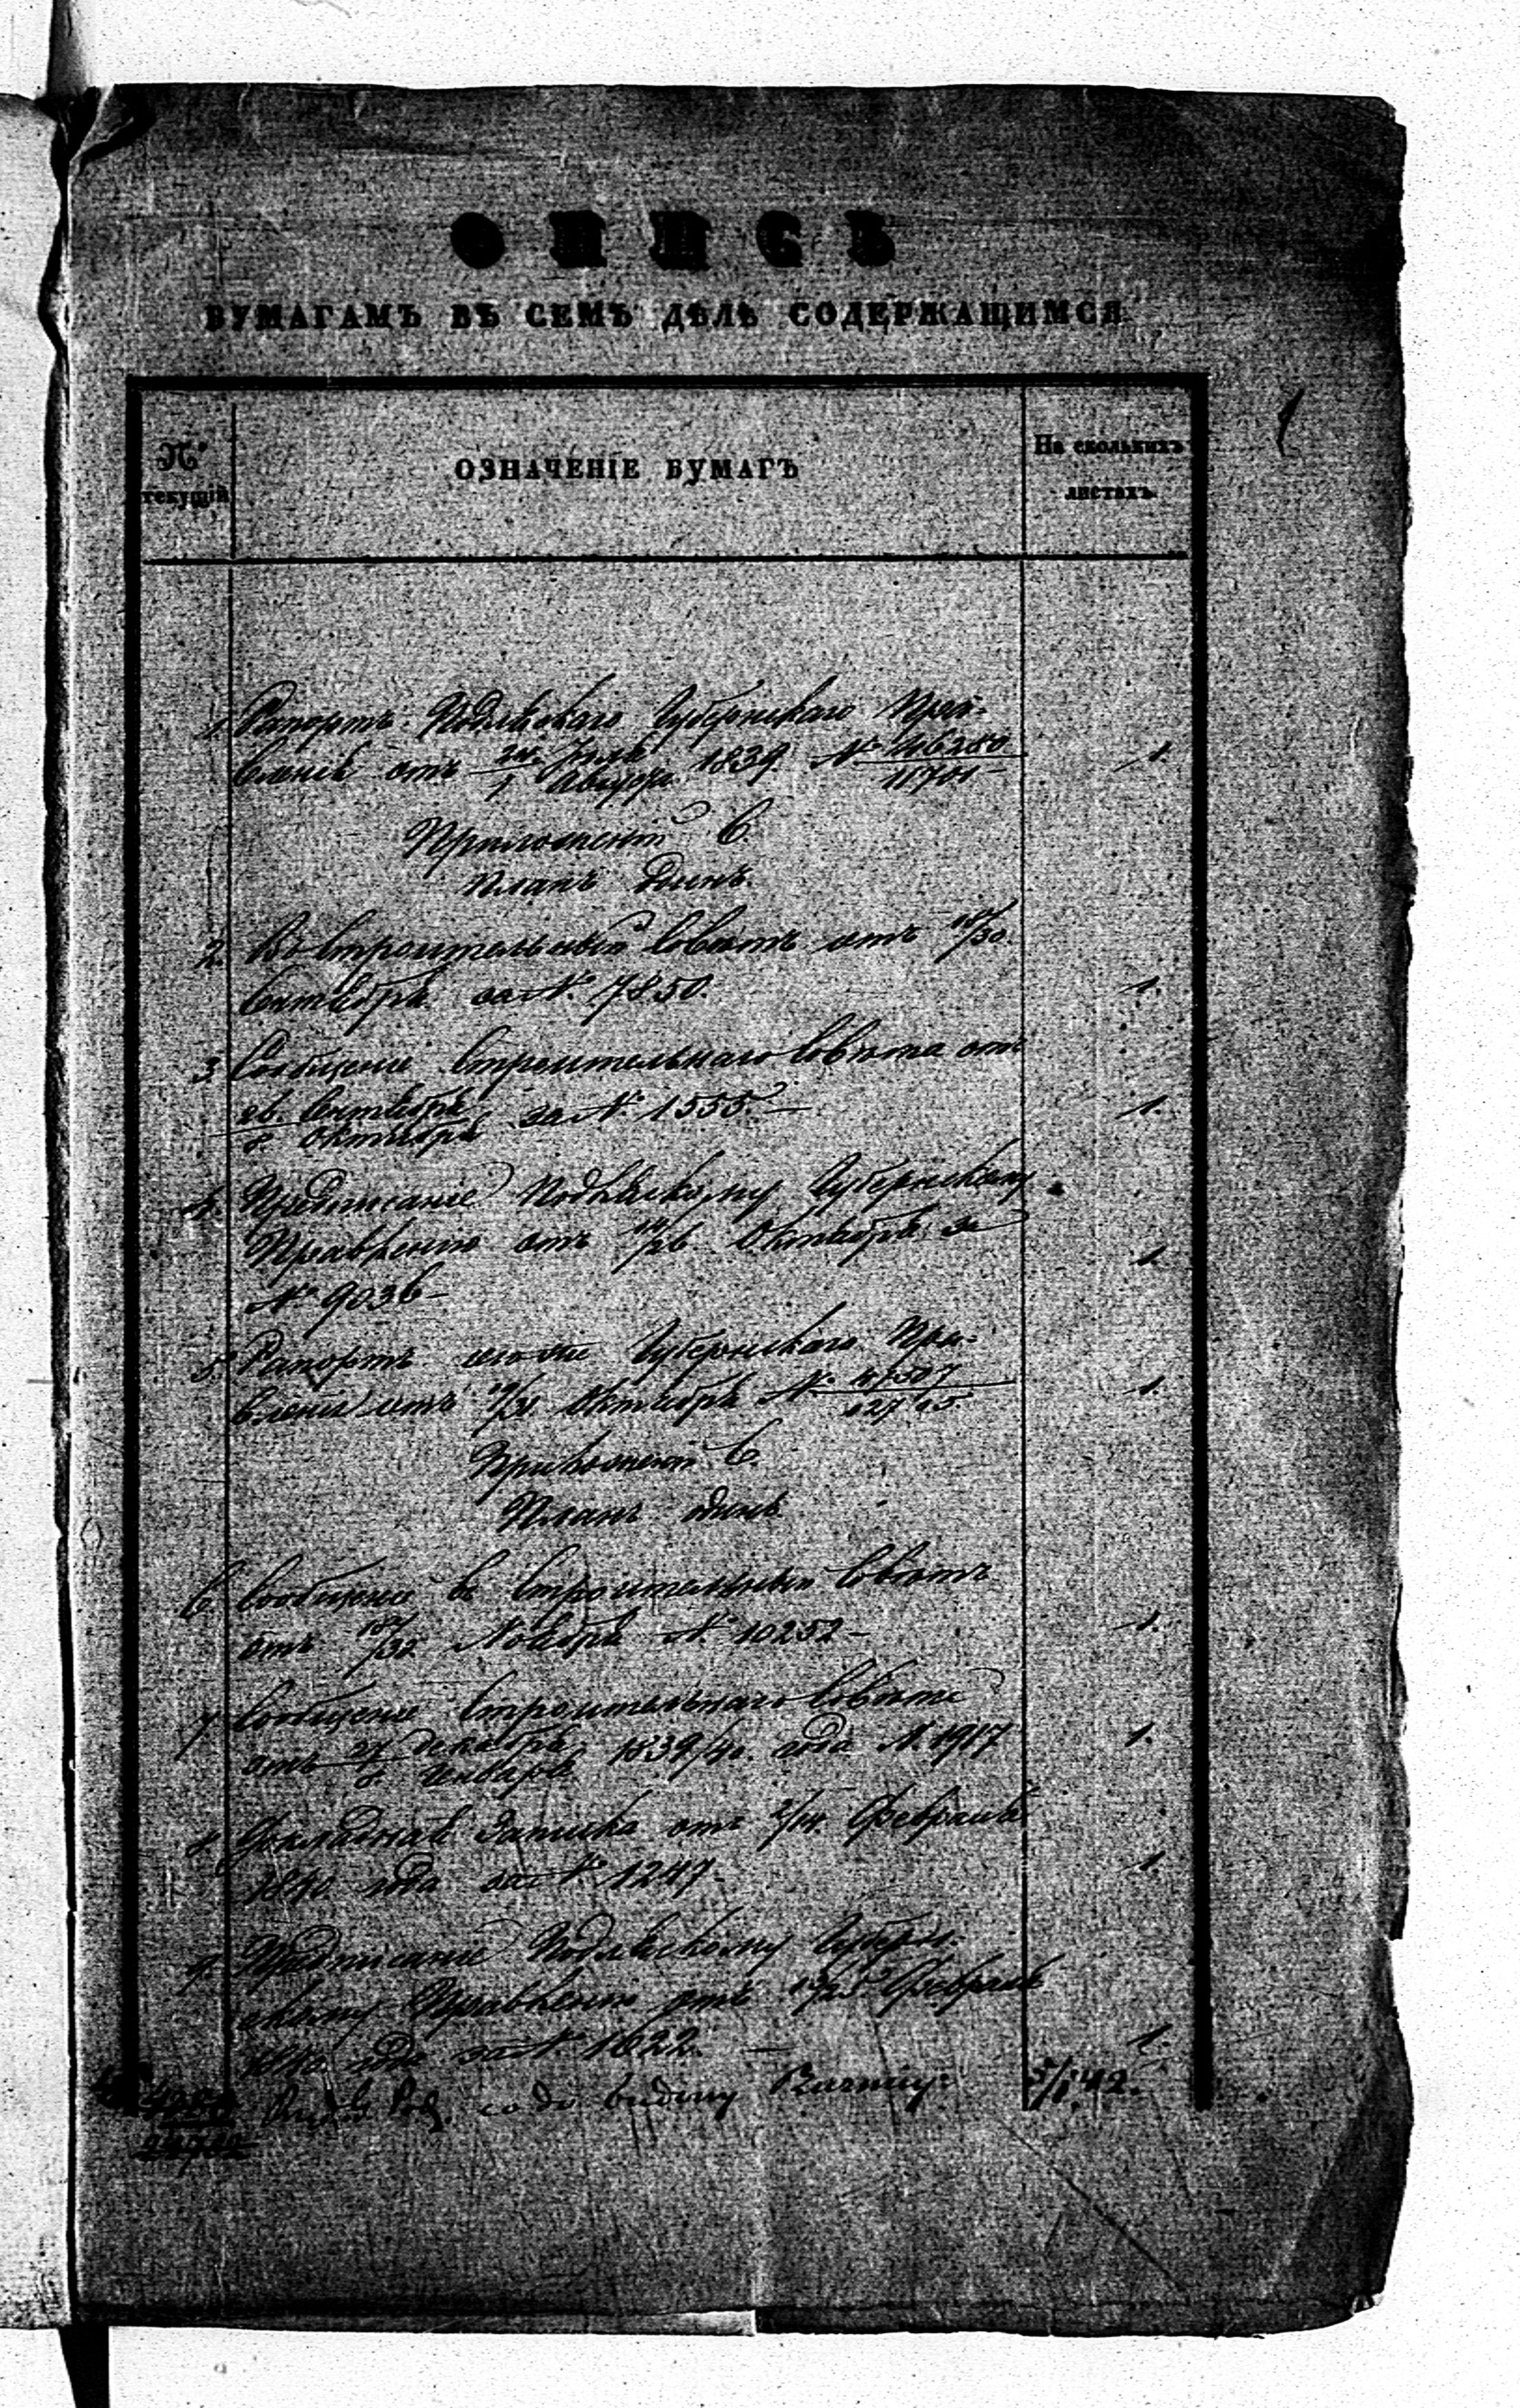 ОПИСЬ
БУМАГАМЪ ВЪ СЕМЪ ДѢЛѢ СОДЕРЖАЩИМСЯ
№ текущій
ОЗНАЧЕНІЕ БУМАГЪ
На сколькихъ листахъ.
1. Рапортъ Подляскаго Губернскаго Прав-
ленія отъ 24 Іюля / 5 Августа 1839 № 46280 / 11701 — 1.
Приложеній 6.
Планъ одинъ.
2. Въ Строительный Совѣтъ отъ 18/30.
Сентября за № 7850. 1.
3. Сообщеніе Строительнаго Совѣта отъ
26. Сентября / 8. Октября за № 1555. — 1.
4. Предписаніе Подляскому Губернскому
Правленію отъ 14/26 Октября за 1.
№ 9036 —
5. Рапортъ того же Губернскаго Пра-
вленія отъ 19/31 Октября № 1.
Приложеній 6.
Планъ одинъ
6. Сообщеніе въ Строительный Совѣтъ
отъ 18/30 Ноября № 10252 — 1.
7. Сообщеніе Строительнаго Совѣта
отъ 27 Декабря / 8 Генваря 1839/40. года № 1917 1.
8. Докладная Записка отъ 2/14. Февраля
1840. года за № 1247. 1.
9. Предписаніе Подляскому Губерн-
скому Правленію отъ 13/25 Февраля
1840. года за № 1622. — 1.
co do budowy 5/1 42.